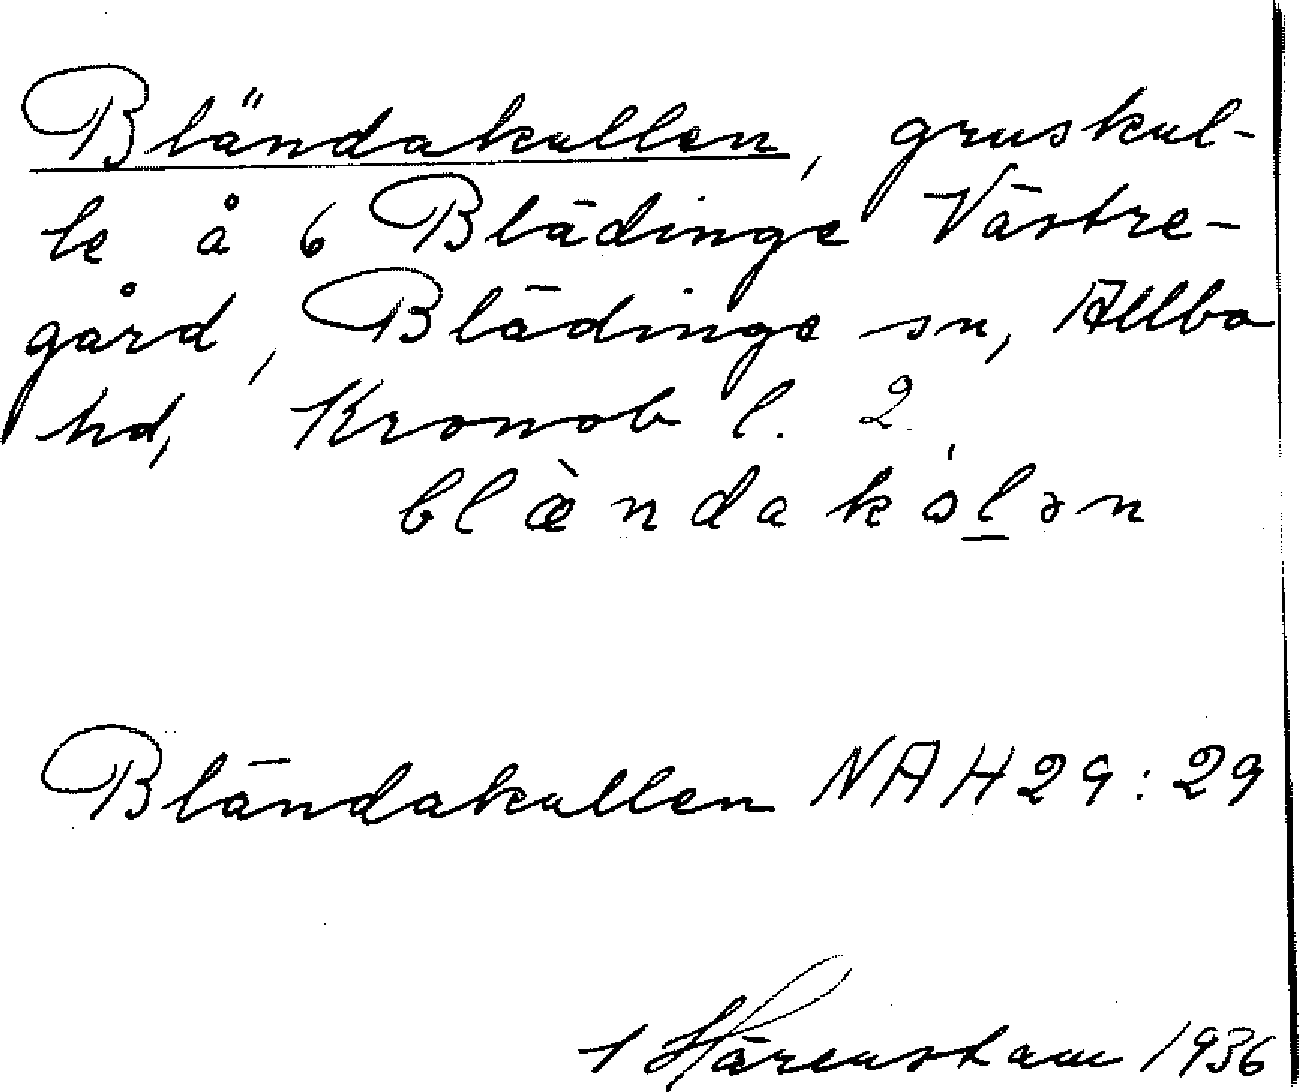 Bländakullen, gruskul-
le å 6 Blädinge Västre-
gård, Blädinge sn, Allbo
hd, Kronob l. 2.
blæ̀ndakòlən
Bländakullen NAH29:29
1 Härenstam 1936